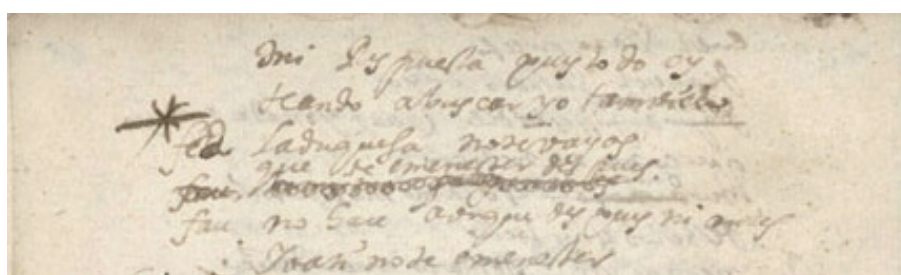 mi Respuesta pues todo es
te ando a buscar yo tambien
fed la duquesa no te vayas
que te e menester despues.
fau
fau no hare aunque despues ni
no te e menester